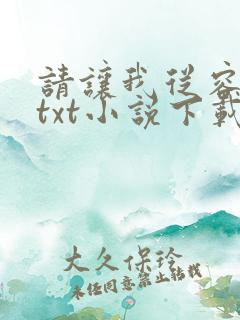 請讓我從容
txt小說下載
大久保玲
未经同意禁止转载